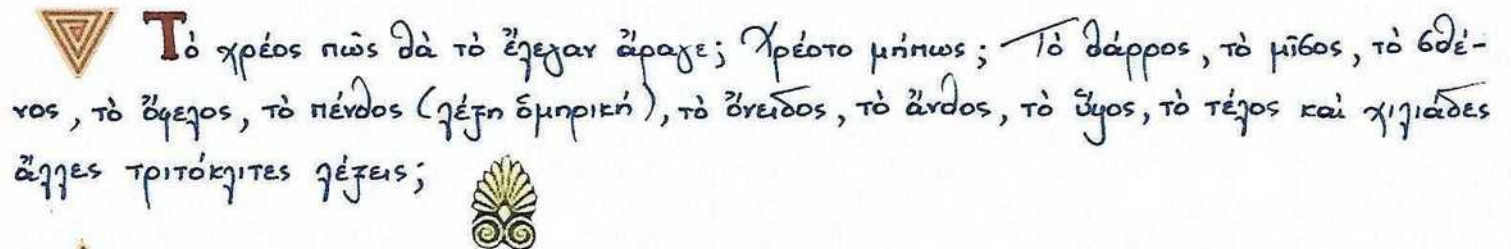 Τὸ χρέος πῶς θὰ τὸ ἔλεγαν ἄραγε; Χρέοτο μήπως; Τὸ θάρρος, τὸ μῖσος, τὸ σθέ-
νος, τὸ ὄφελος, τὸ πένθος (λέξη ὁμηρική), τὸ ὄνειδος, τὸ ἄνθος, τὸ ὕψος, τὸ τέλος καὶ χιλιάδες
ἄλλες τριτόκλιτες λέξεις;